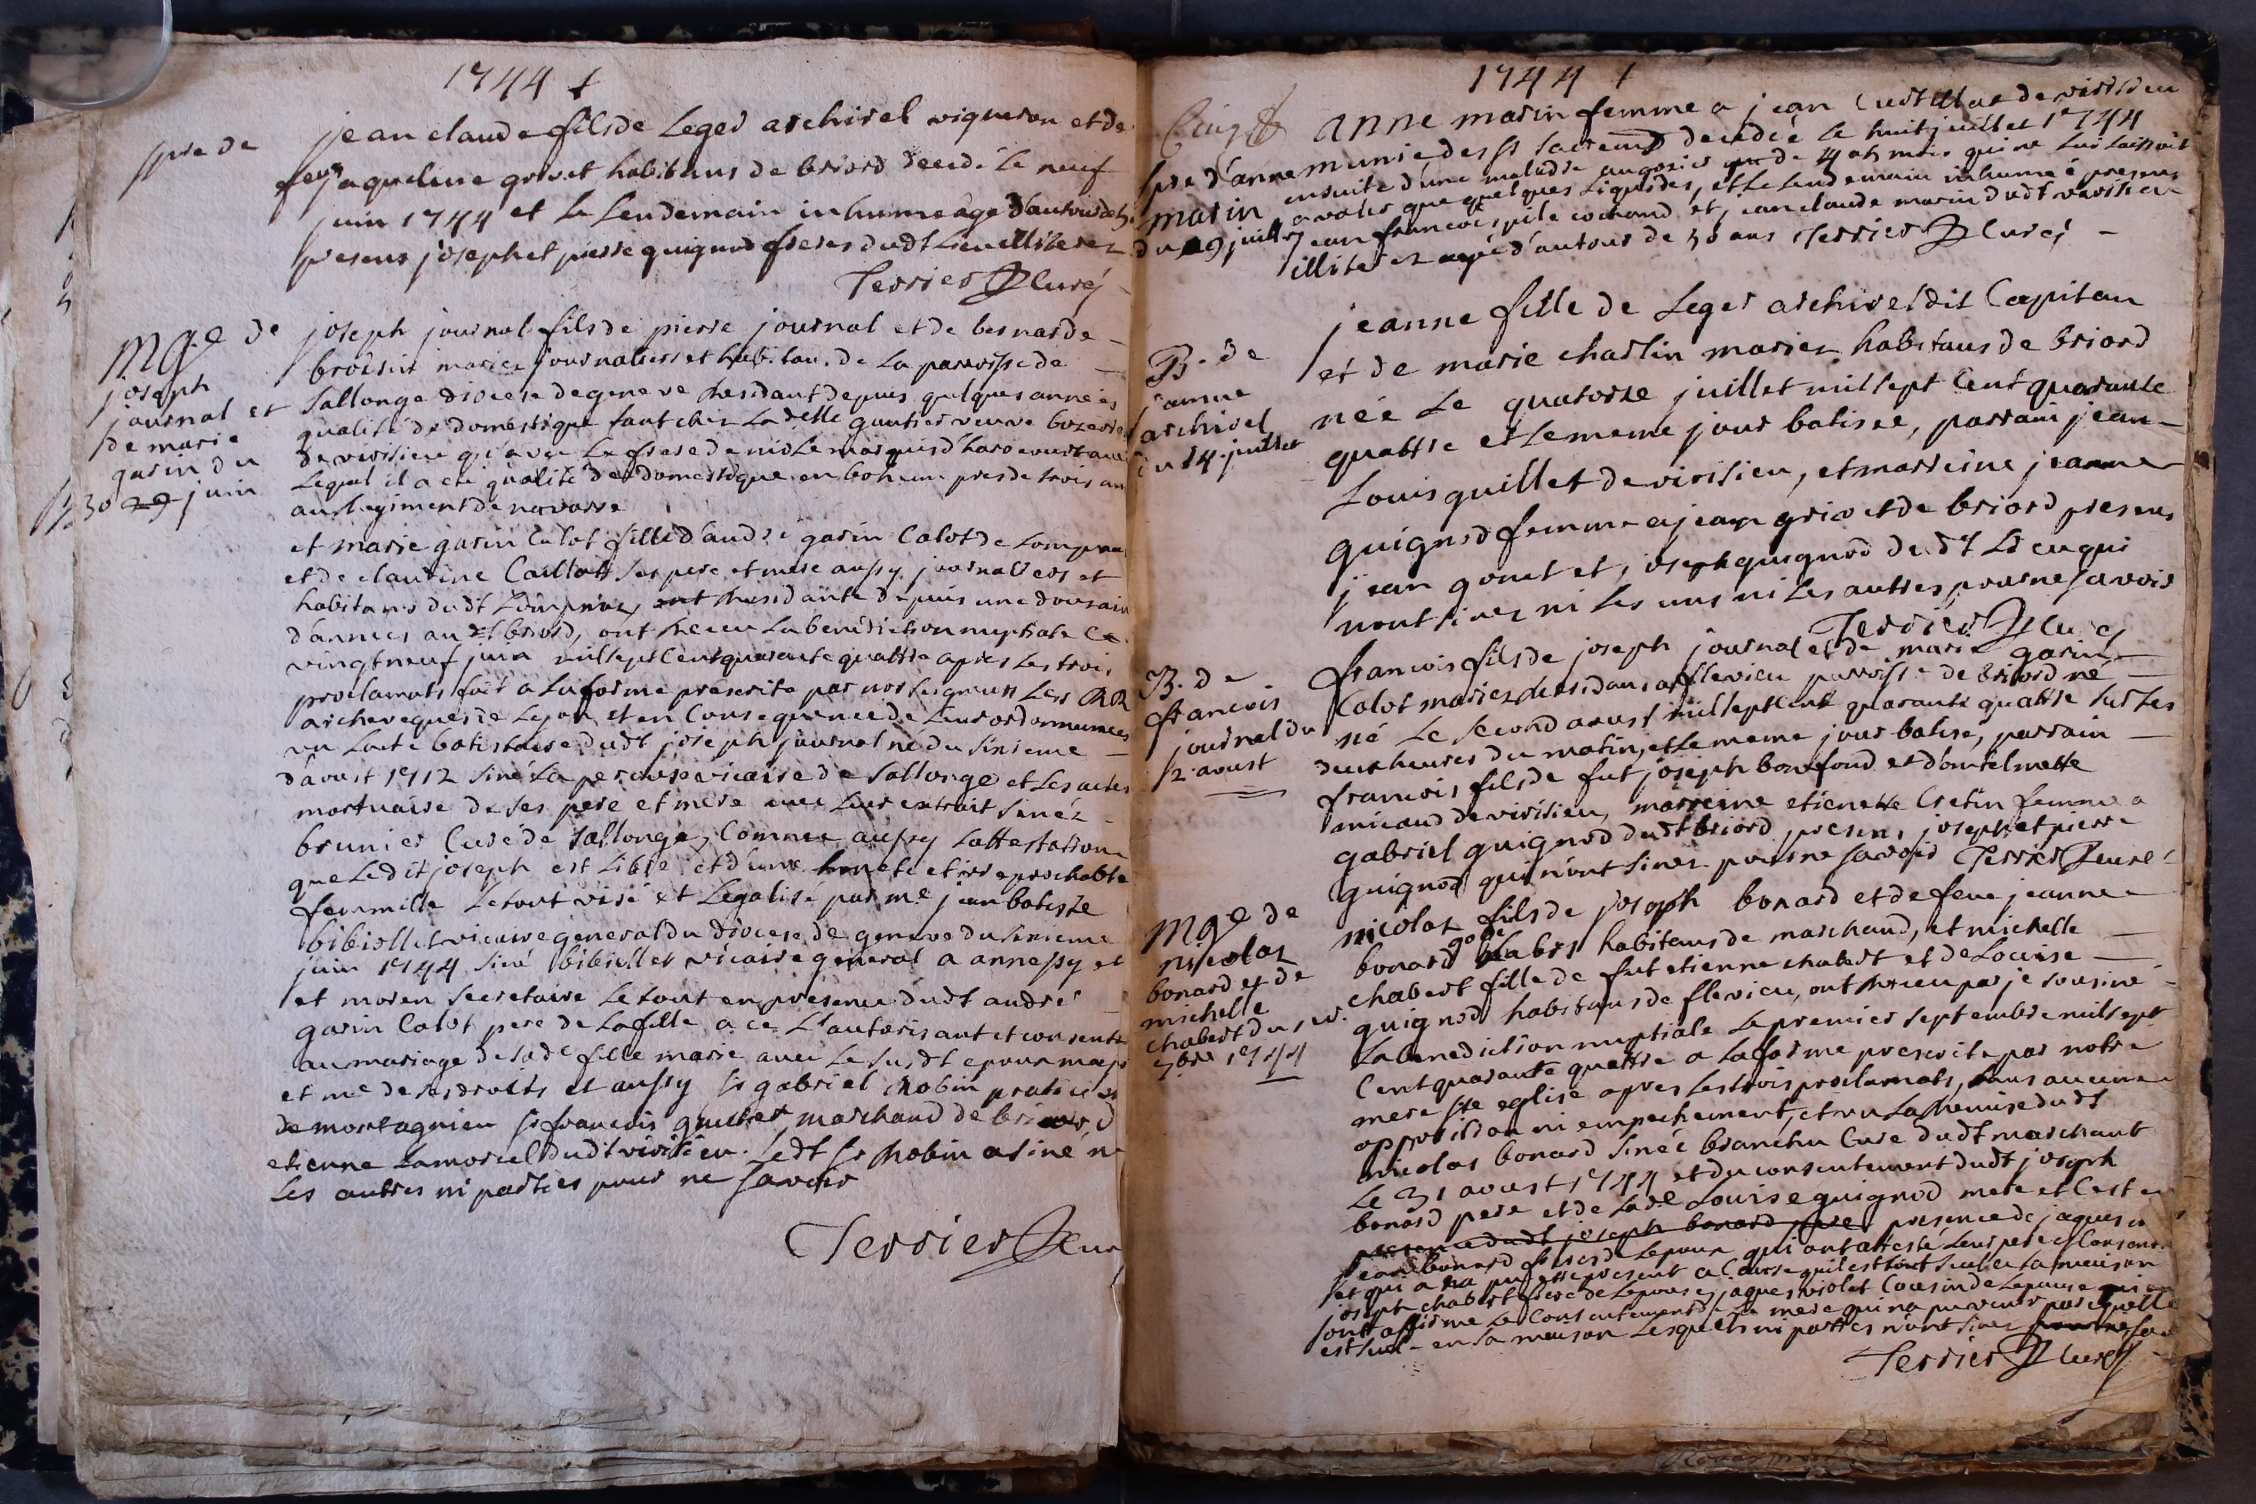 1744 +
spre de
jean claude fils de Leger archirel vigneron et de
feu jaqueline grivet habitans de briord decedé le neuf
juin 1744 et le lendemain inhumé agé d'autour de
presens joseph et pierre quignod freres dudt Lieu illiterez
Terrier curé
Mge de
joseph
journal et
de marie
garin du
30 29 juin
joseph journal fils de pierre journal et de bernarde
mariez journaliers et habitans de la parroisse de
Sallonge diocese de geneve residant depuis quelques années
qualité de domestique tant chez La delle gautier veuve
de virisieu qu'avec Le frere de Le marquis d'
Lequel il a eté qualité de domestique en boheme pres de trois ans
au regiment de navarre
et marie garin Calot fille d'andré garin Calot de Lompnas
et de claudine Caillot ses pere et mere aussy journaliers et
habitans dudt Lompnas, residante depuis une
d'années au dt briord, ont receu la benédiction nuptiale ce
vingt neuf juin mil sept cent quarante quattre apres les trois
proclamats fait a la forme prescrite par nos seigneurs Les RR
archeveques de Lyon et en Consequence de Leurs ordonnances
vu Lacte batistaire dudt joseph journal né du sixieme
d'avust 1712 siné vicaire de Sallonge et les actes
mortuaire de ses pere et mere avec Leur extrait sinéz
brunier Cure de Sallonge, Comme aussy Lattestation
que Ledit joseph est Libre et d'une honete et irreprochable
fammille Letout visé et Legalisé par me jean batiste
bibiollet vicaire general du diocese de geneve du sixieme
juin 1744 siné bibiollet vicaire general a annessy et
et moren secretaire Le tout en presence dudt andré
garin Calot pere de La fille a ce L'autorisant et consentant
au mariage de sa de fille marie avec Le sudt epoux
et me de ses droits et aussy sr gabriel Robin praticien
de montagnieu sr francois marchand de briord
etienne Lamorel dudt virisieu. Ledt sr Robin a siné n
Les autres ni parties pour ne savoir
Terrier cur
1744 +
Cuiq
spre d'anne
marin
du 9 juillet
anne marin femme a jean de virisieu
munie des st sacremt decedée Le huit juillet 1744
ensuite d'une maladie de 4 ou mois qui ne Lui Laissoit
avaler que quelques Liquides, et Le Lendemain inhumée presens
jean francois pile cochand et jean claude marin dudt virisieu
illiterez agée d'autour de 50 ans Terrier Curé
B. de
jeanne
archirel
du 14 juillet
jeanne fille de Leger archirel dit Capitan
et de marie charlin mariez habitans de briord
née Le quatorze juillet mil sept Cent quarante
quattre et Le meme jour batisée, parrain jean
Louis quillet de virisieu, et marreine jeanne
quignod femme a jean grivet de briord presens
jean gonet et joseph quignod dudt Lieu qui
n'ont sinez ni les uns ni Les autres pour ne savoir
Terrier Curé
B. de
francois
journal du
2 avust
francois fils de joseph journal et de marie garin
Calot mariez residans a flevieu parroisse de briord né
né Le second avust mil sept Cent quarante quattre sur Les
deux heures du matin, et Le meme jour batisé, parrain
francois fils de fut joseph bonefond et d'
micaud de virisieu, marreine etienette Cretin femme a
gabriel quignod dudt briord presens joseph et pierre
quignod qui n'ont sinez pour ne savoir Terrier Curé
Mge de
nicolas
bonard et de
michelle
chabert du 1er
7bre 1744
nicolas fils de joseph bonard et de feue jeanne
bonard habitans de marchand, et michelle
chabert fille de fut etienne chabert et de Louise
quignod habitans de flevieu, ont receu par je sousiné
La benediction nuptiale Le premier septembre mil sept
Cent quarante quattre a La forme prescrite par notre
mere ste eglise apres Les trois proclamats, sans aucune
opposition ni empechement, et vu La Remise dudt
nicolas bonard sinée branchu Cure dudt marchant
Le 31 avust 1744 et du consentement dudt joseph
bonard pere et de La de Louise quignod mere et C'est en
presence dudt joseph bonard pere presence de jaques
jean bonard freres de Lepoux qui ont attesté Leur pere
et qui a na pu etre present a Cause quil est seul a La maison
joseph chabert frere de Lepouse, jaques violet Cousin de Lepouse qui
ont affirmé Le Consentement de La mere qui na pu venir
est seul en sa maison Lesquels ni parties n'ont sinez pour ne
Terrier Curé